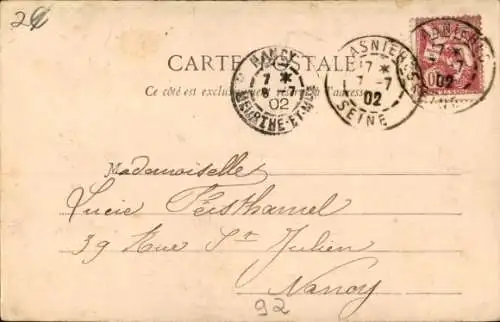 24
CARTE POSTALE
Ce côté est exclusivement réservé à l'adresse
NANCY
7 *
8 -7
02
MEURTHE-ET-MLLE
ASNIERES
7 *
7 -7
02
SEINE
ASNIERES
7 *
7 -7
02
Mademoiselle
Lucie Feisthamel
39 Rue St Julien
Nancy
92